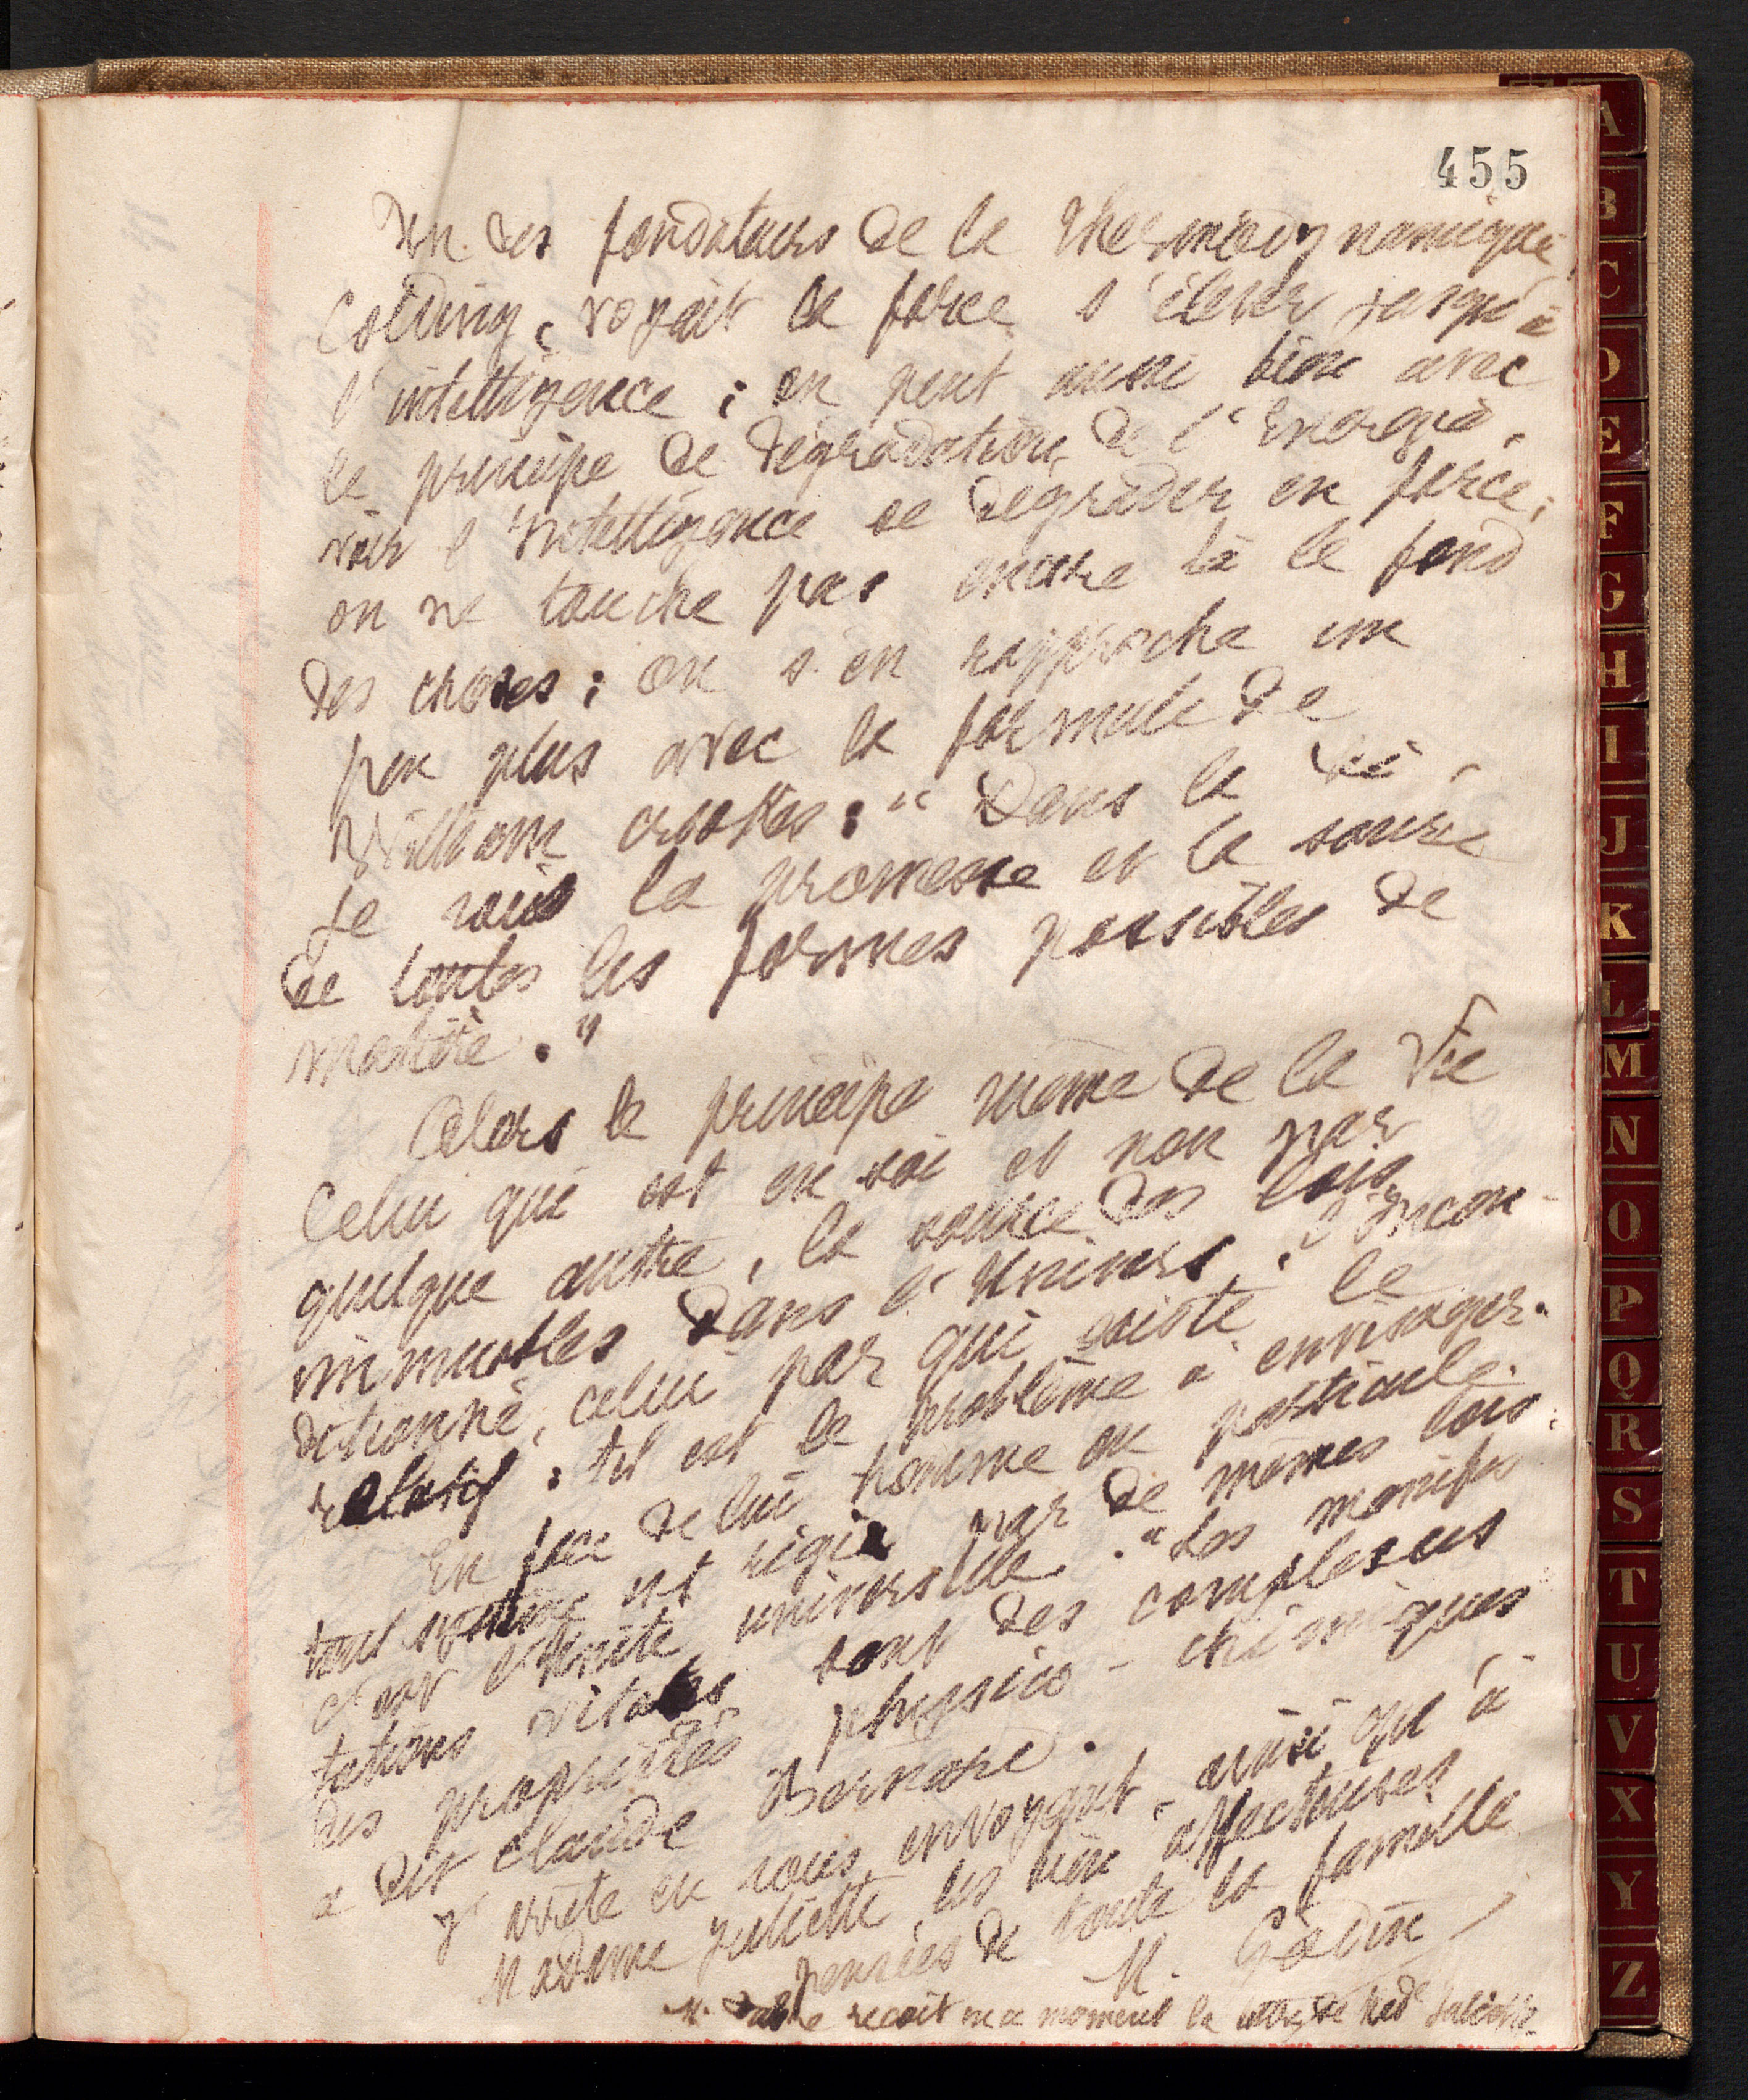 455
Un des fondateurs de la Thermodynamique,
Colding, voyait la force s'élever jusqu'à
l'intelligence ; on peut aussi bien avec
le principe de dégradation de l'Energie,
voir l'Intelligence se dégrader en force ;
on ne touche pas encore là le fond
des choses ; on s'en rapproche un
peu plus avec la formule de
William Crookes : " Dans la Vie,
je vois la promesse et la source
de toutes les formes possibles de
matière. "
Alors le principe même de la Vie
Celui qui est en soi et non par
quelque autre, la source des lois
immuables dans l'Univers, l'Incon-
ditionné, celui par qui existe le
relatif : tel est le problème à envisager.
En face de lui homme ou particule
tout est régi par de mêmes lois :
c'est l'Unité universelle. " Les manifes
tations vitales sont des complexus
des propriétés physico-chimiques
a dit Claude Bernard.
J'arrête en vous envoyant, ainsi qu'à
Madame Juliette, les bien affectueuses
pensées de toute la famille
M. Godin
M. reçoit en ce moment la lettre de Mad^e Juliette.